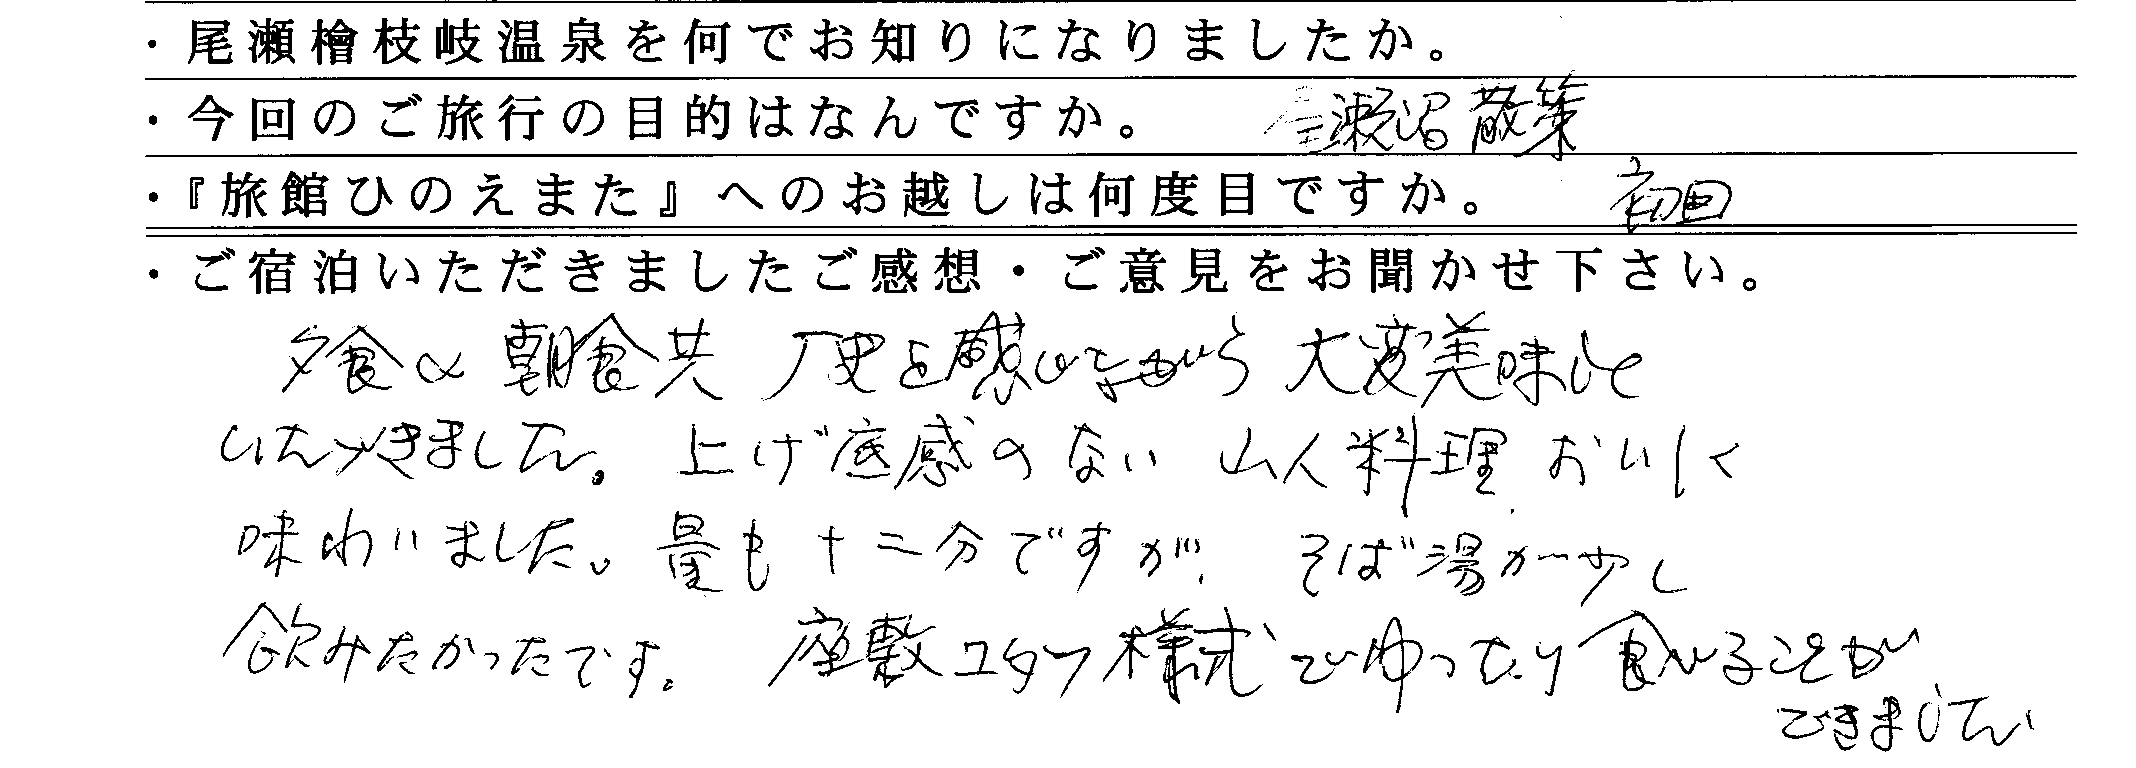 ・尾瀬檜枝岐温泉を何でお知りになりましたか。
・今回のご旅行の目的はなんですか。 尾瀬沼散策
・『旅館ひのえまた』へのお越しは何度目ですか。 初回
・ご宿泊いただきましたご感想・ご意見をお聞かせ下さい。
夕食 朝食共 歴史を感じながら 大変美味しく
いただきました。上げ底感のない 山人料理 おいしく
味わいました。量も十二分ですが、そば湯が少し
飲みたかったです。 座敷 様式でゆったり食べることが
できました